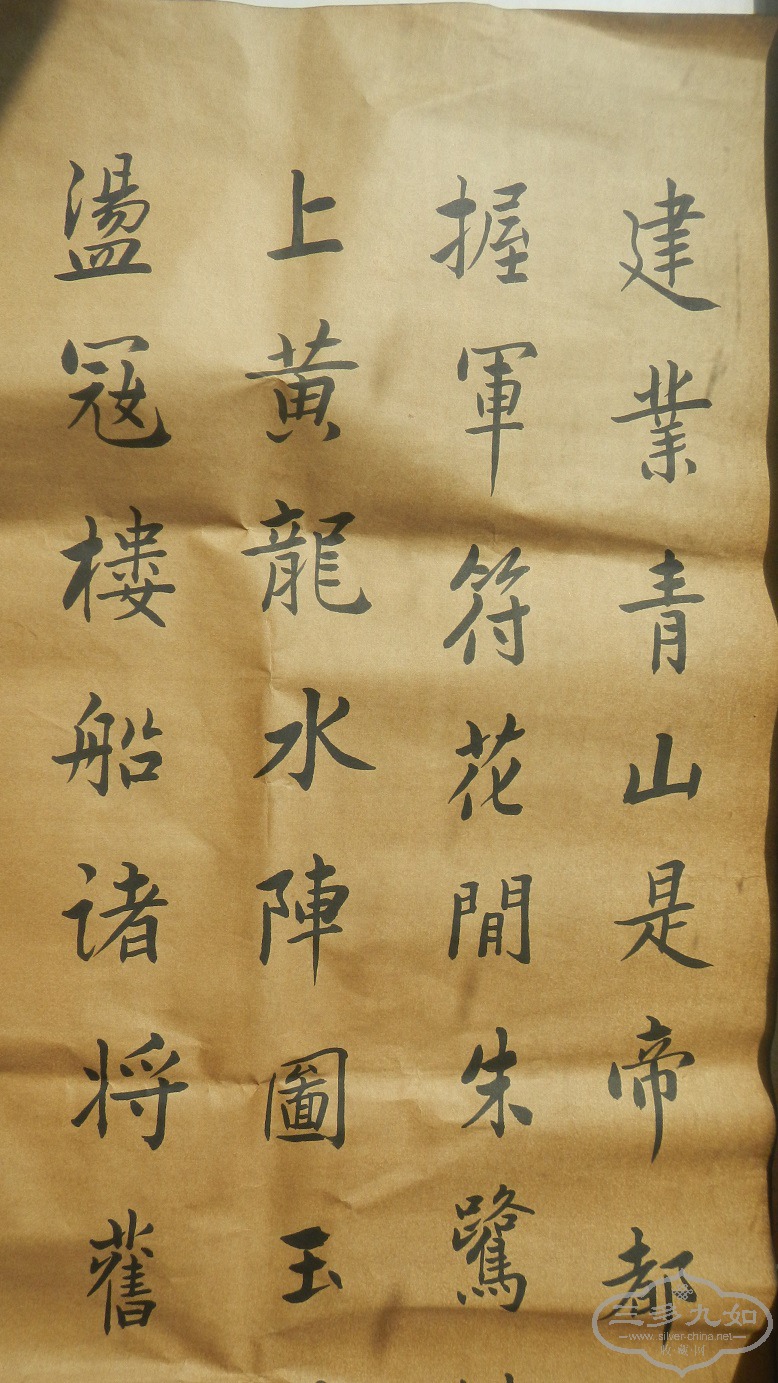 建業青山是帝都
握軍符花間朱鷺
上黃龍水陣圖玉
盪寇樓船諸将舊
三多九如
www.silver-china.net
收藏网